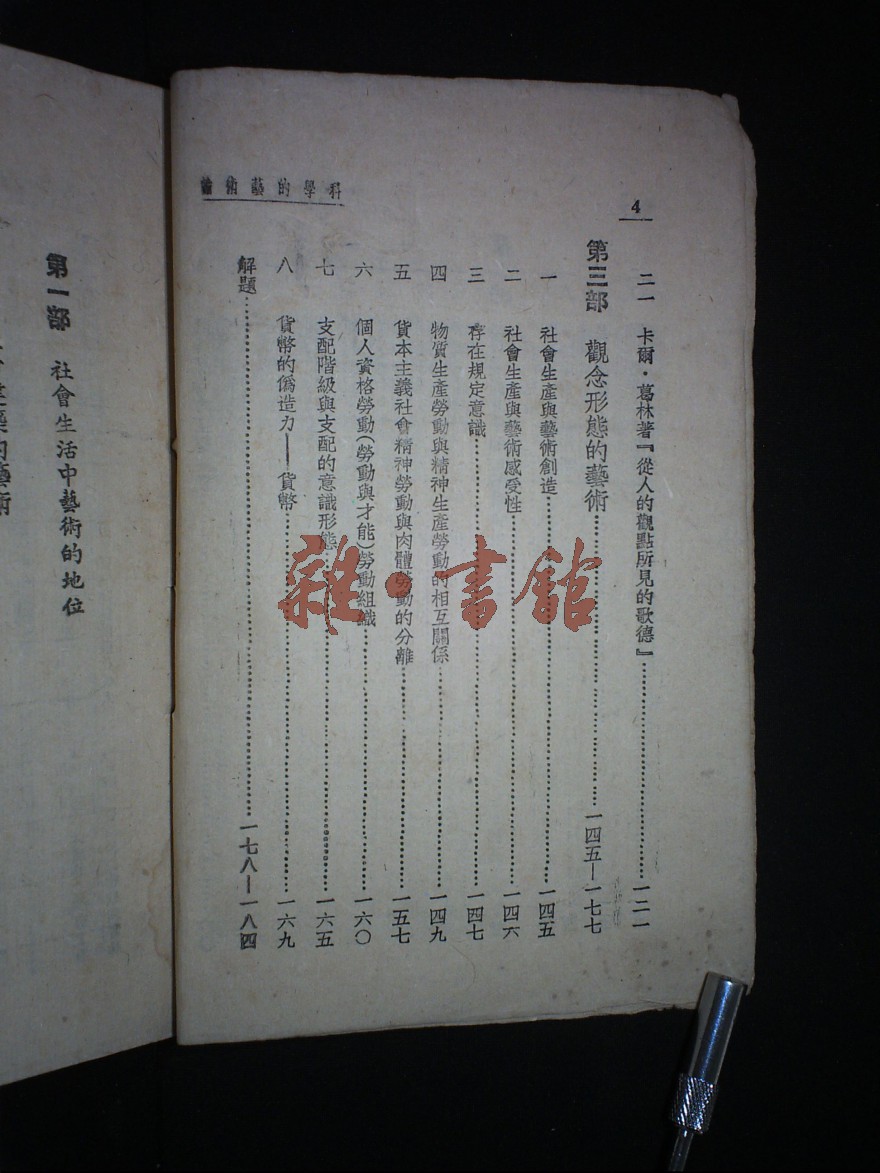 4
科學的藝術論
二一 卡爾·葛林著『從人的觀點所見的歌德』……一二一
第三部 觀念形態的藝術……一四五—一七七
一 社會生產與藝術創造……一四五
二 社會生產與藝術感受性……一四六
三 存在規定意識……一四七
四 物質生產勞動與精神生產勞動的相互關係……一四九
五 貨本主義社會精神勞動與肉體勞動的分離……一五七
六 個人資格勞動(勞動與才能)勞動組織……一六〇
七 支配階級與支配的意識形態……一六五
八 貨幣的僞造力——貨幣……一六九
解題……一七八—一八四
第一部 社會生活中藝術的地位
的藝術
雜·書館